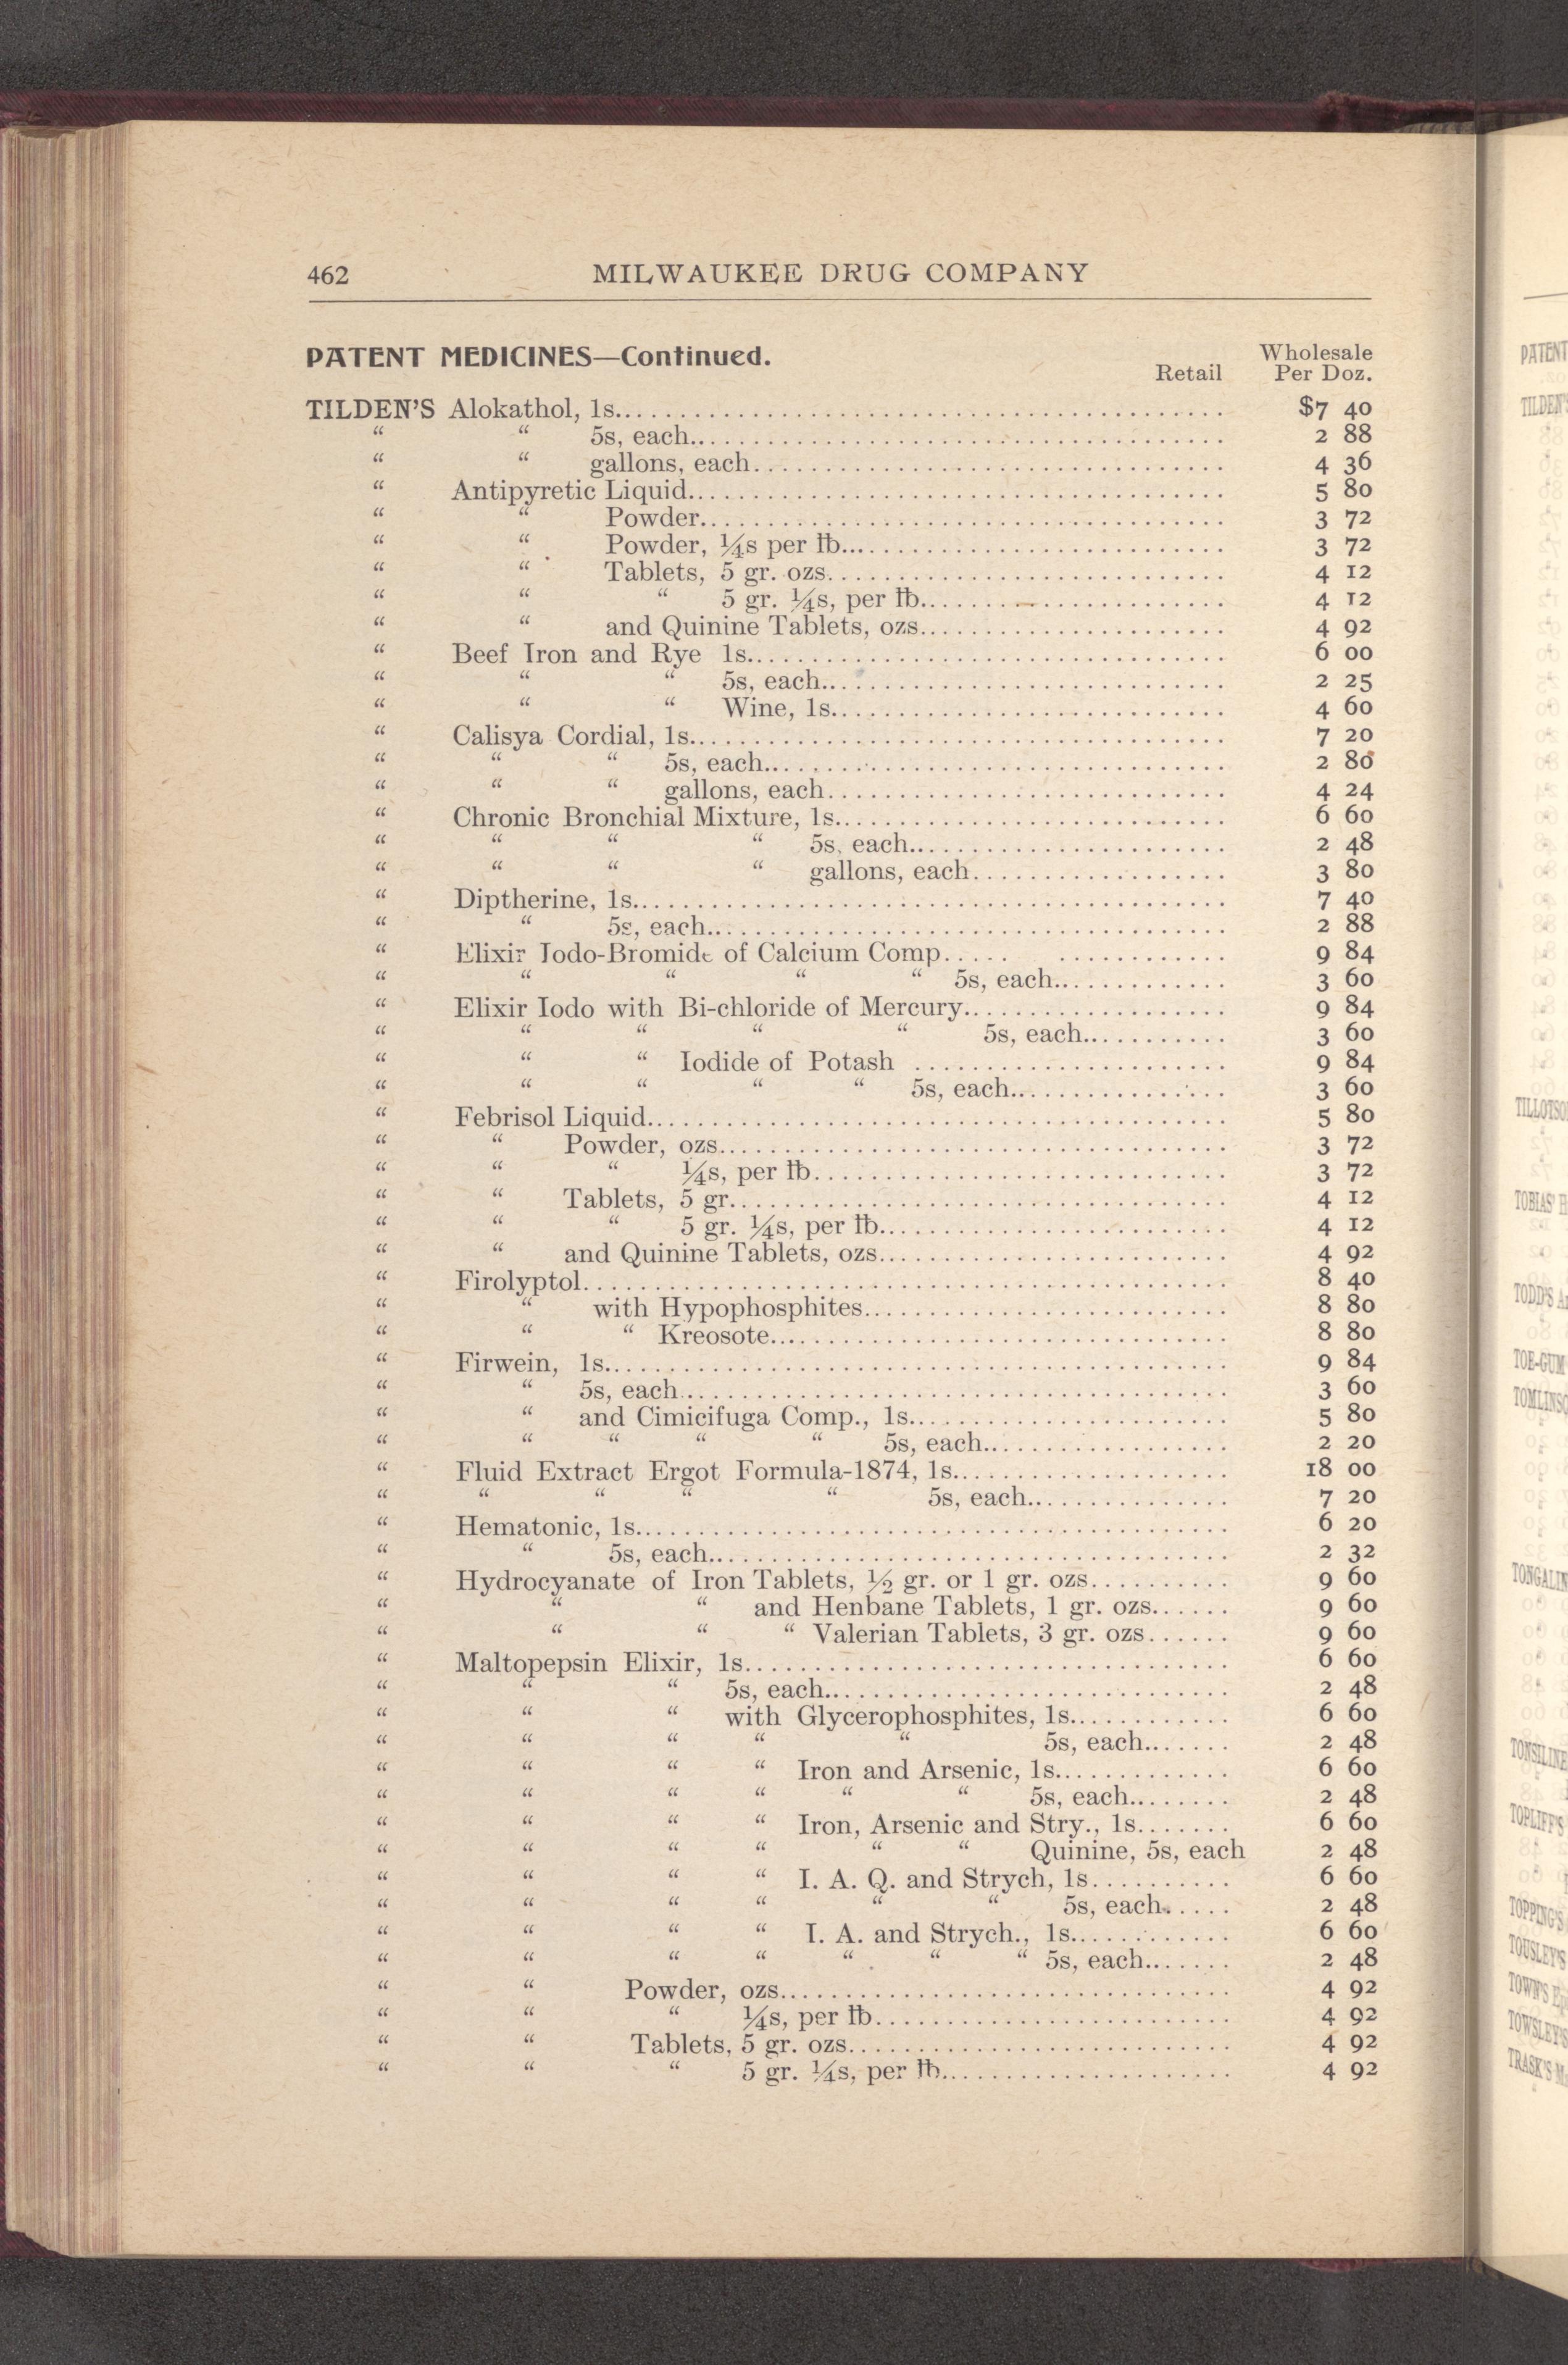 462 MILWAUKEE DRUG COMPANY
PATENT MEDICINES—Continued.
Retail Wholesale Per Doz.
TILDEN'S Alokathol, 1s. $7 40
“ “ 5s, each. 2 88
“ “ gallons, each. 4 36
“ Antipyretic Liquid. 5 80
“ “ Powder. 3 72
“ “ Powder, ¼s per lb. 3 72
“ “ Tablets, 5 gr. ozs. 4 12
“ “ “ 5 gr. ¼s, per lb. 4 12
“ “ and Quinine Tablets, ozs. 4 92
“ Beef Iron and Rye 1s. 6 00
“ “ “ 5s, each. 2 25
“ “ “ Wine, 1s. 4 60
“ Calisya Cordial, 1s. 7 20
“ “ “ 5s, each. 2 80
“ “ “ gallons, each. 4 24
“ Chronic Bronchial Mixture, 1s. 6 60
“ “ “ “ 5s, each. 2 48
“ “ “ “ gallons, each. 3 80
“ Diptherine, 1s. 7 40
“ “ 5s, each. 2 88
“ Elixir Iodo-Bromide of Calcium Comp. 9 84
“ “ “ “ “ 5s, each. 3 60
“ Elixir Iodo with Bi-chloride of Mercury. 9 84
“ “ “ “ “ 5s, each. 3 60
“ “ “ Iodide of Potash 9 84
“ “ “ “ “ 5s, each. 3 60
“ Febrisol Liquid. 5 80
“ “ Powder, ozs. 3 72
“ “ “ ¼s, per lb. 3 72
“ “ Tablets, 5 gr. 4 12
“ “ “ 5 gr. ¼s, per lb. 4 12
“ “ and Quinine Tablets, ozs. 4 92
“ Firolyptol. 8 40
“ “ with Hypophosphites. 8 80
“ “ “ Kreosote. 8 80
“ Firwein, 1s. 9 84
“ “ 5s, each. 3 60
“ “ and Cimicifuga Comp., 1s. 5 80
“ “ “ “ “ 5s, each. 2 20
“ Fluid Extract Ergot Formula-1874, 1s. 18 00
“ “ “ “ “ 5s, each. 7 20
“ Hematonic, 1s. 6 20
“ “ 5s, each. 2 32
“ Hydrocyanate of Iron Tablets, ½ gr. or 1 gr. ozs. 9 60
“ “ “ and Henbane Tablets, 1 gr. ozs. 9 60
“ “ “ “ Valerian Tablets, 3 gr. ozs. 9 60
“ Maltopepsin Elixir, 1s. 6 60
“ “ “ 5s, each. 2 48
“ “ “ with Glycerophosphites, 1s. 6 60
“ “ “ “ “ 5s, each. 2 48
“ “ “ “ Iron and Arsenic, 1s. 6 60
“ “ “ “ “ “ 5s, each. 2 48
“ “ “ “ Iron, Arsenic and Stry., 1s. 6 60
“ “ “ “ “ “ Quinine, 5s, each 2 48
“ “ “ “ I. A. Q. and Strych, 1s. 6 60
“ “ “ “ “ “ 5s, each. 2 48
“ “ “ “ I. A. and Strych., 1s. 6 60
“ “ “ “ “ “ “ 5s, each. 2 48
“ “ Powder, ozs. 4 92
“ “ “ ¼s, per lb. 4 92
“ “ Tablets, 5 gr. ozs. 4 92
“ “ “ 5 gr. ¼s, per lb. 4 92
PATENT
TILDEN'S
TOBIAS'
TODD'S
TOE-GUM
TONSILINE
TOPLIFF'S
TOPPING'S
TOUSLEY'S
TOWN'S
TOWSLEY'S
TRASK'S